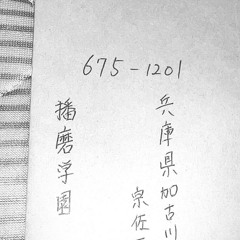 675-1201
兵庫県加古川
宗佐
播磨学園